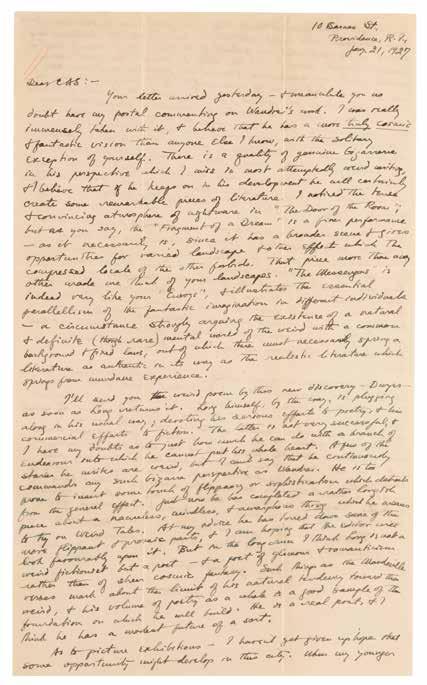 10 Barnes St.
Providence, R.I.,
Jany. 21, 1927
Dear CAS:—
Your letter arrived yesterday — & meanwhile you no
doubt have my postal commenting on Wandrei's work. I was really
immensely taken with it, & believe that he has a more truly cosmic
& fantastic vision than anyone else I know, with the solitary
exception of yourself. There is a quality of genuine bizarrerie
in his perspective which I miss in most attemptedly weird writing,
& I believe that if he keeps on in his development he will certainly
create some remarkable pieces of literature. I noticed the tense
& convincing atmosphere of nightmare in "The Door of the Room";
but as you say, the "Fragment of a Dream" is a finer performance
— as it necessarily is, since it has a broader scene & gives
opportunities for varied landscape & other effects which the
compressed locale of the other forbids. That piece more than any
other made me think of your landscapes. "The Messengers" is
indeed very like your and illustrates the essential
parallelism of the fantastic imagination in different individuals
— a circumstance strongly arguing the existence of a natural
& definite (though rare) mental world of the weird with a common
background & fixed laws, out of which there must necessarily spring a
literature as authentic in its way as the realistic literature which
springs from mundane experience.
I'll send you the weird poem by this new discovery — Dwyer —
as soon as Long returns it. Long himself, by the way, is plugging
along in his usual way; devoting his serious efforts to poetry, & his
commercial efforts to fiction. The latter is not very successful, &
I have my doubts as to just how much he can do with a branch of
endeavour into which he cannot put his whole heart. A few of the
stories he writes are weird, but I can't say that he continuously
commands any such bizarre perspective as Wandrei. He is too
prone to insert some touch of flippancy or sophistication which detracts
from the general effect. Just now he has completed a rather longish
piece about a nameless, mindless, & amorphous thing which he means
to try on Weird Tales. At my advice he has toned down some of the
more flippant & prosaic parts, & I am hoping that the editor will
look favourably upon it. But in the long run I think Long is not a
weird fictionist but a poet — & a poet of glamour & romanticism
rather than of sheer cosmic fantasy. Such things as the Mandeville
verses mark about the limit of his natural tendency toward the
weird, & his volume of poetry as a whole is a good sample of the
foundation on which he will build. He is a real poet, & I
think he has a modest future of a sort.
As to picture exhibitions — I haven't yet given up hope that
some opportunity might develop in this city. When my younger